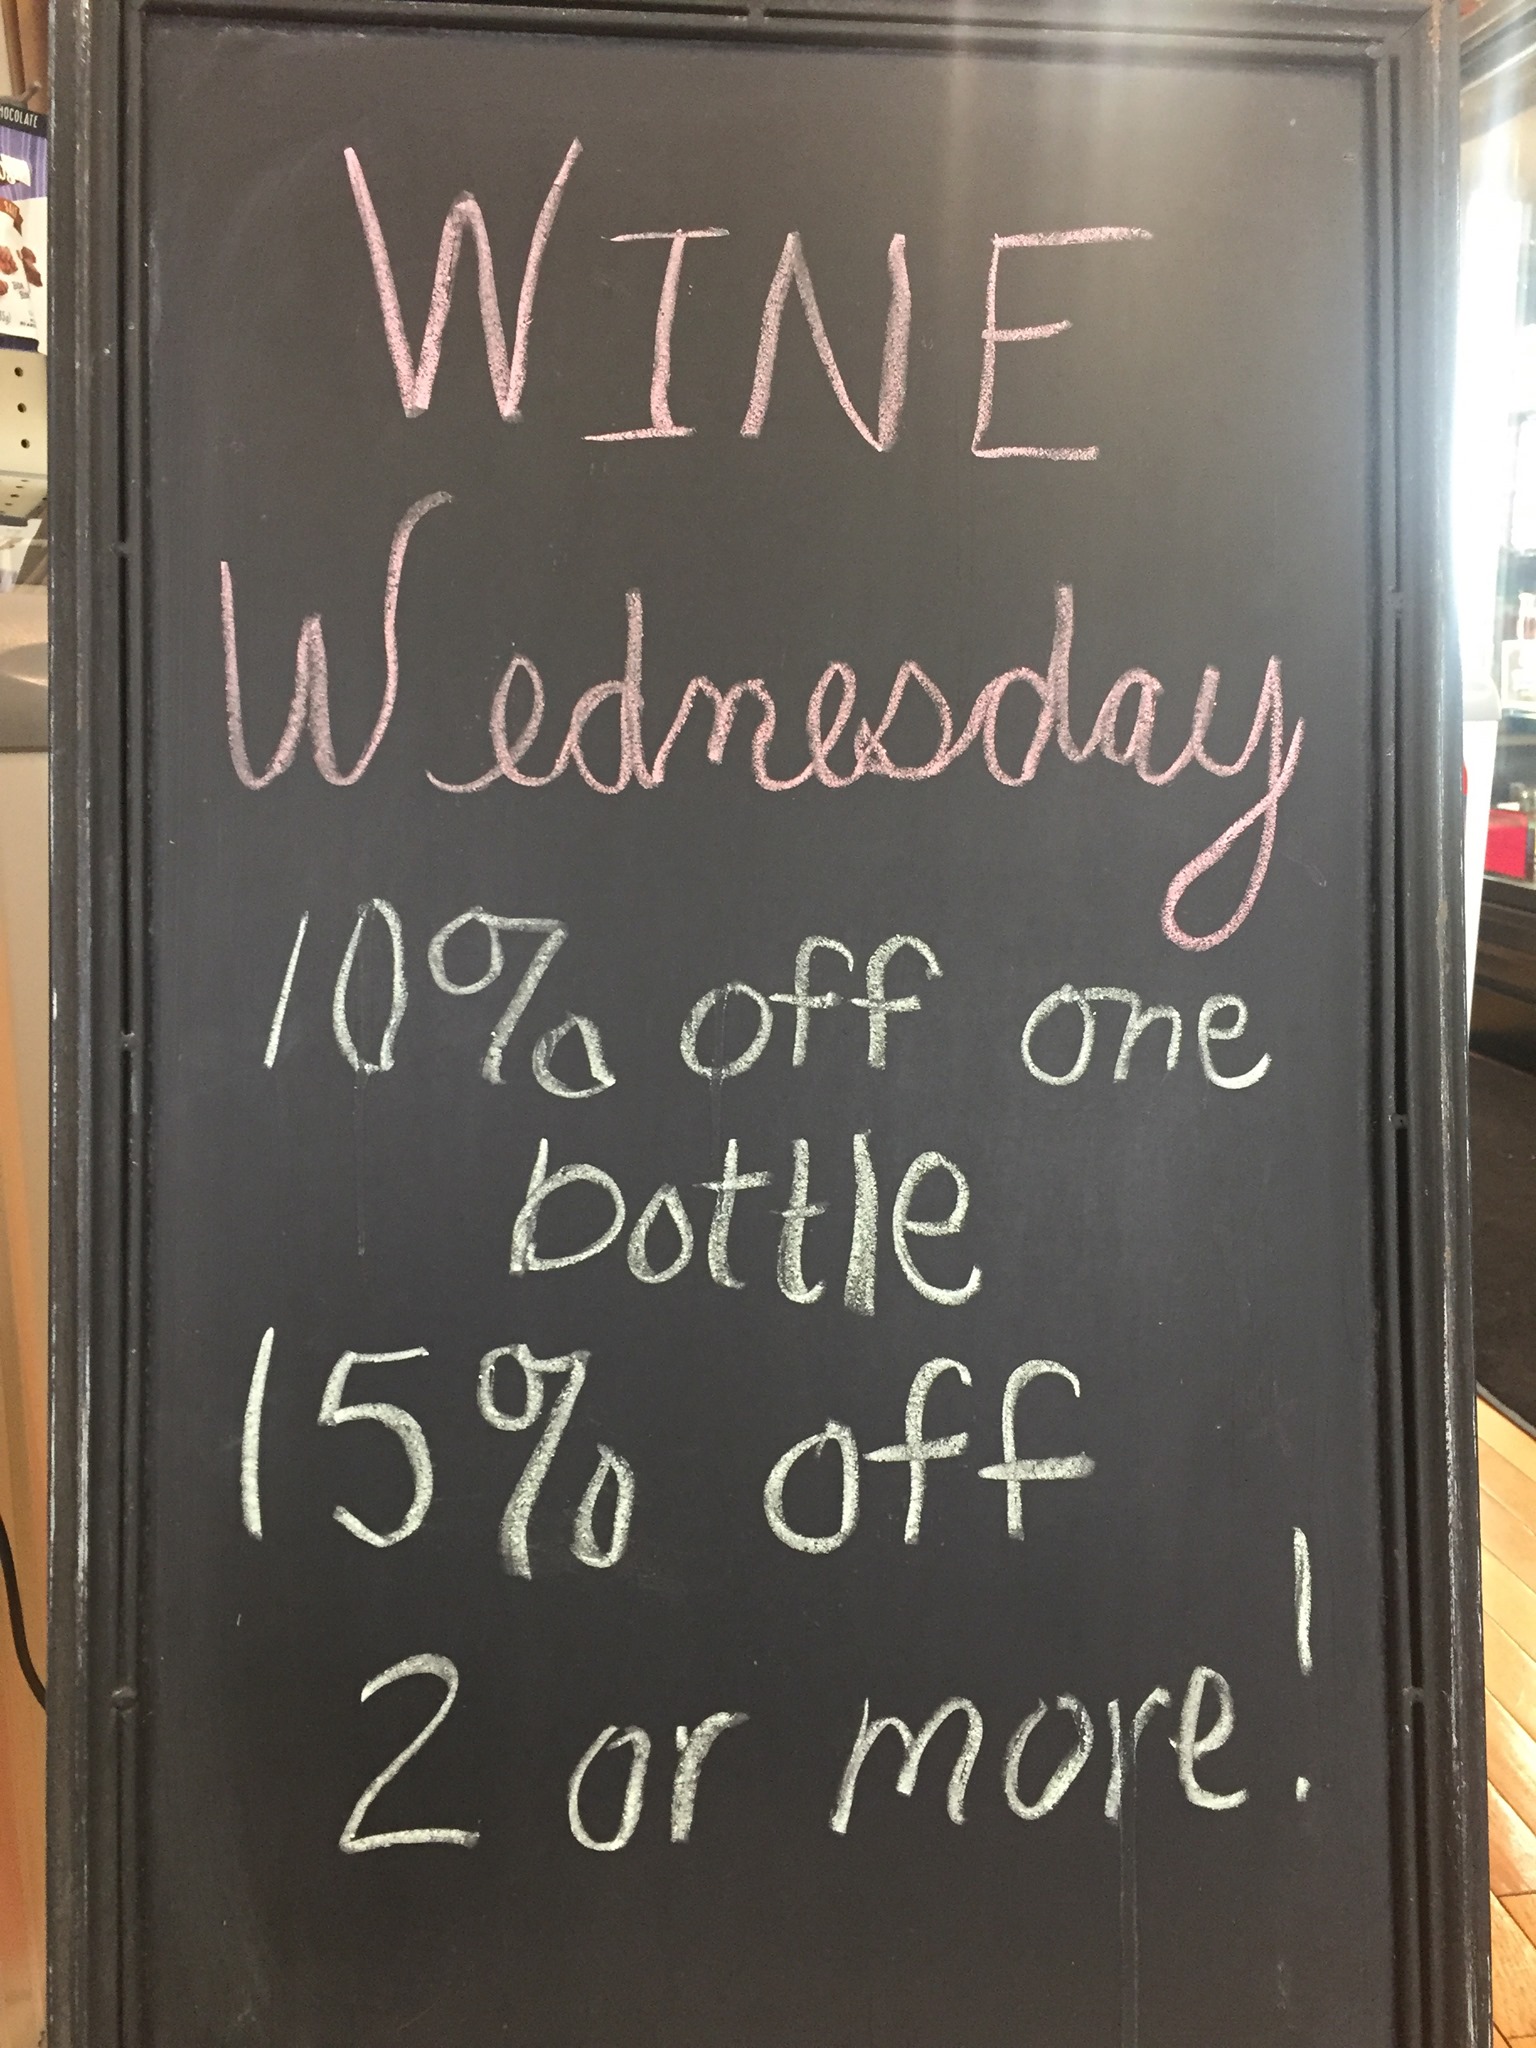 WINE
Wednesday
10% off one
bottle
15% off
2 or more!
OCOLATE